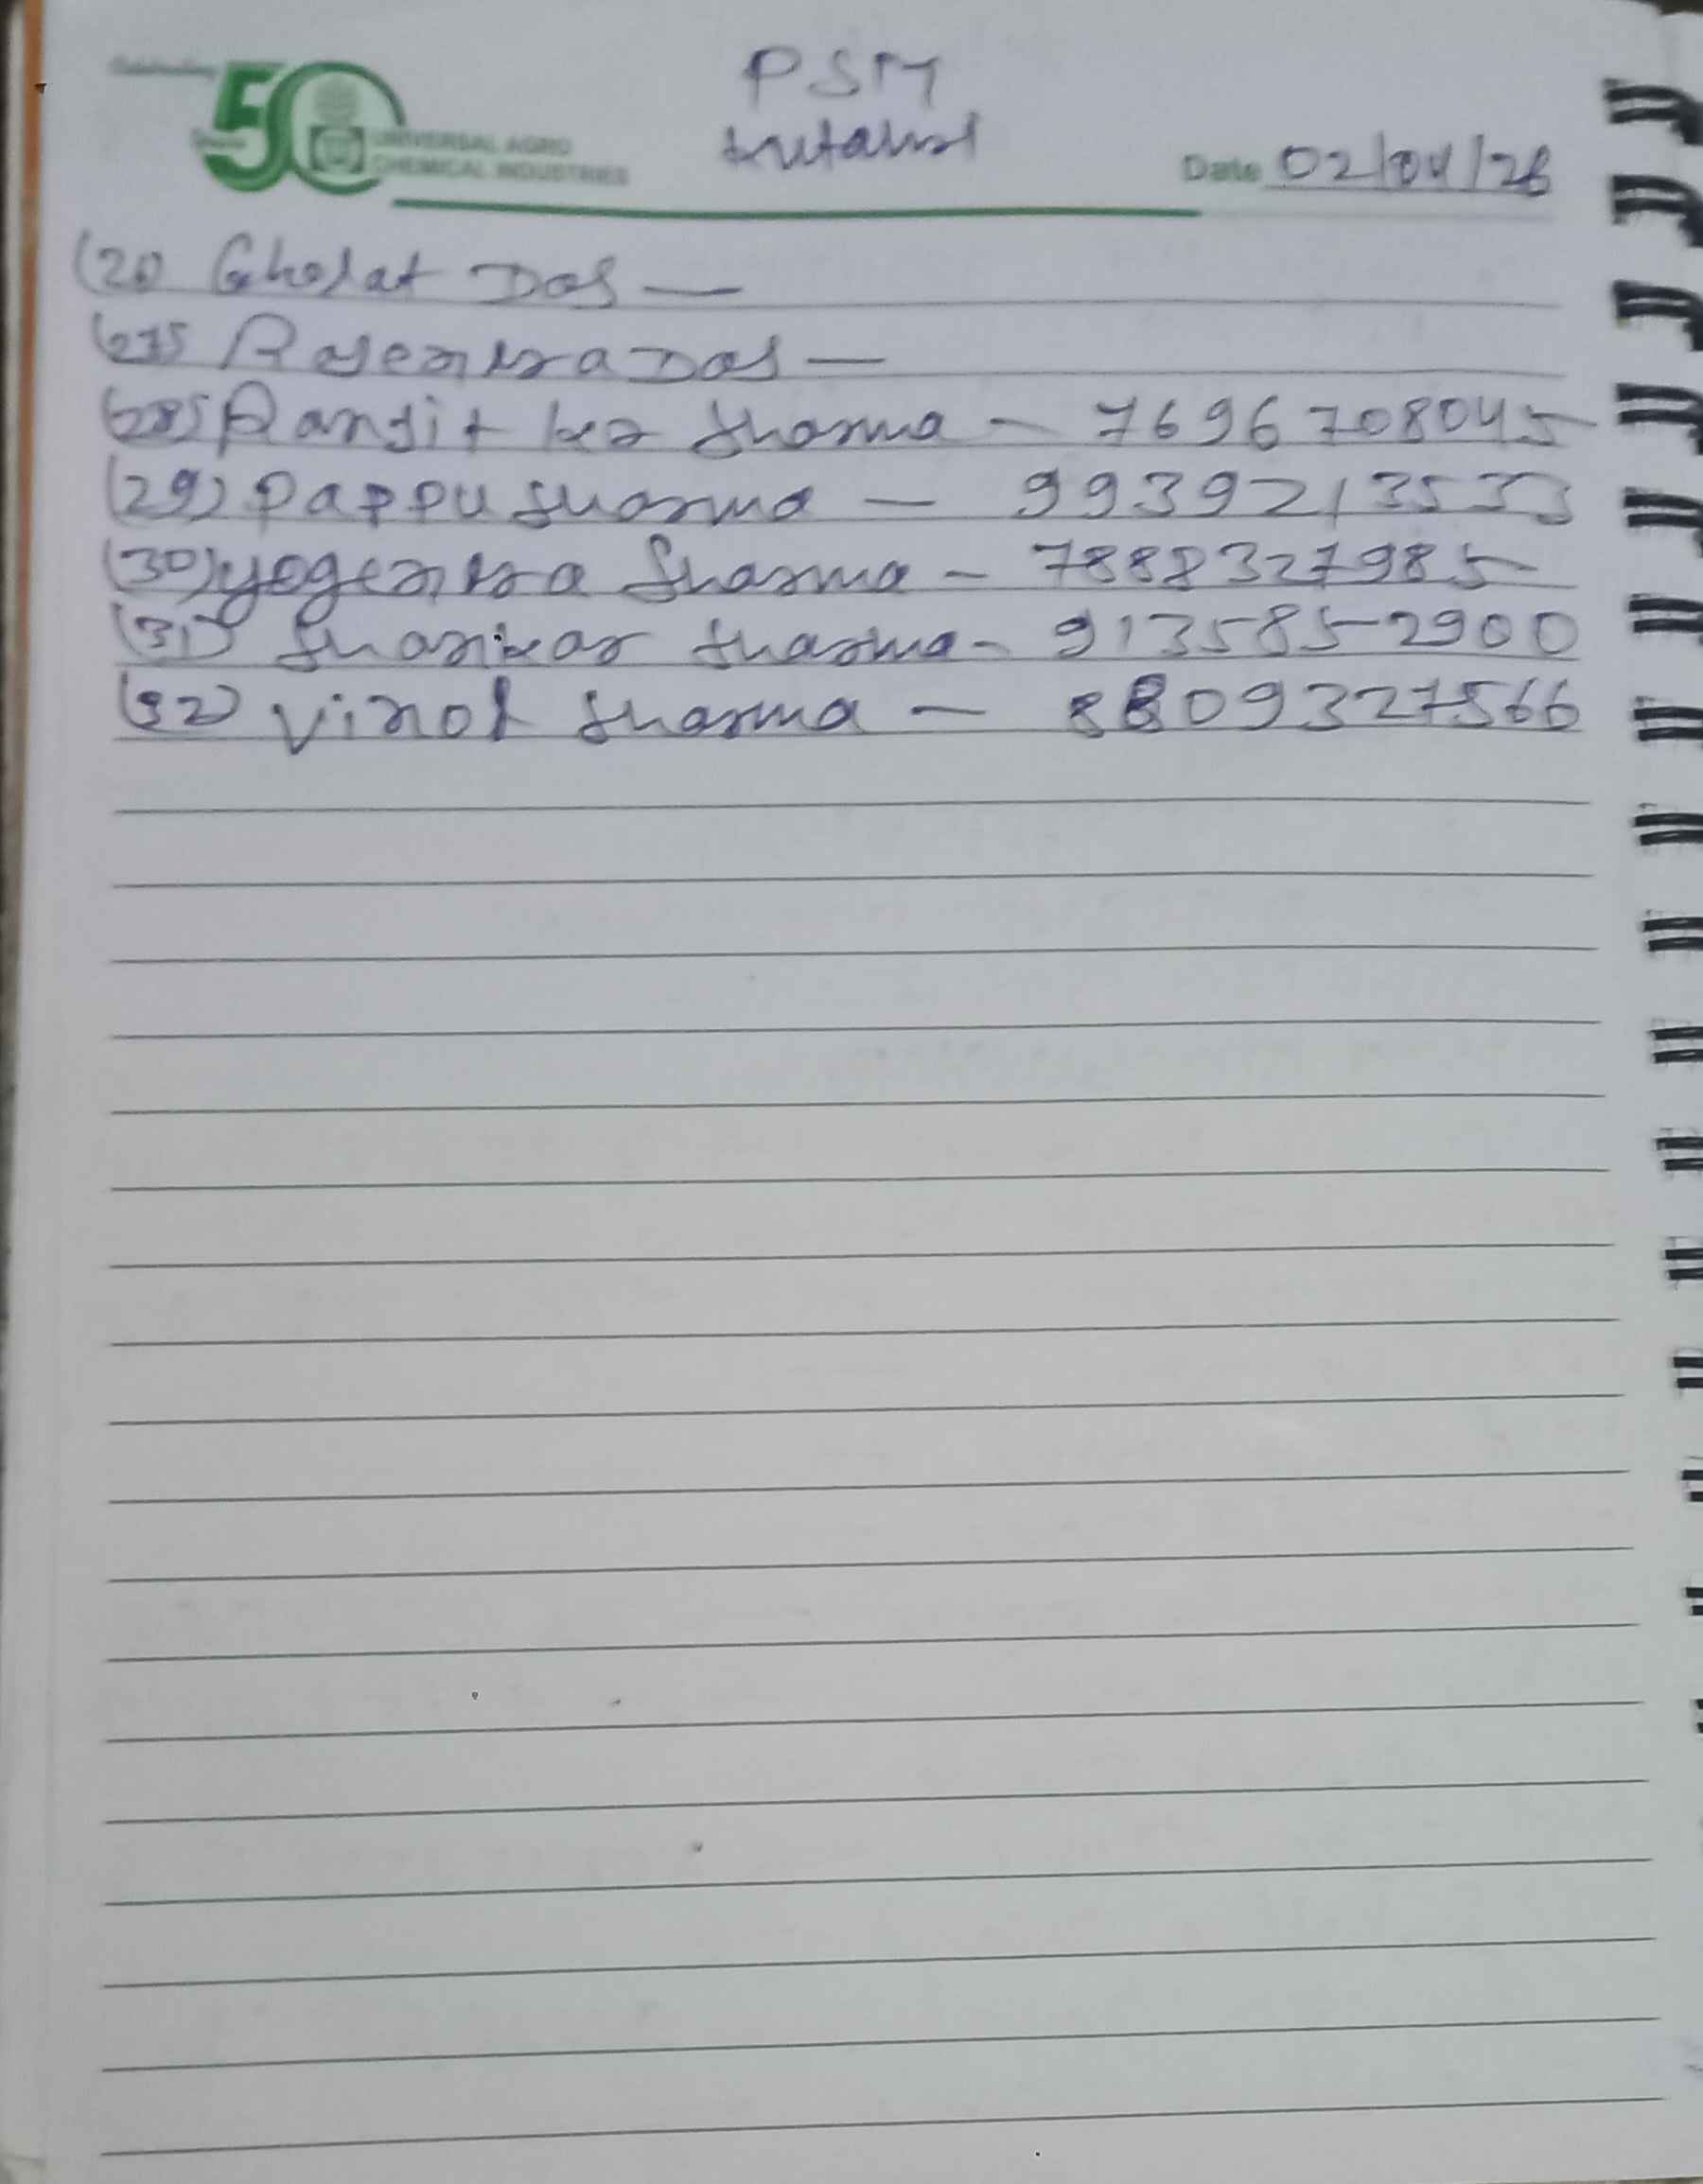 50
UNIVERSAL AGRO
CHEMICAL INDUSTRIES
PSM
Date 02/04/26
Das —
(27) Rajendra Das —
(28) Ranjit kr Sharma - 7696708045
(29) Pappu Sharma — 9939213533
(30) yogendra Sharma - 7888327985
(31) Shankar Sharma - 9135852900
(32) Vinod Sharma — 8809327566